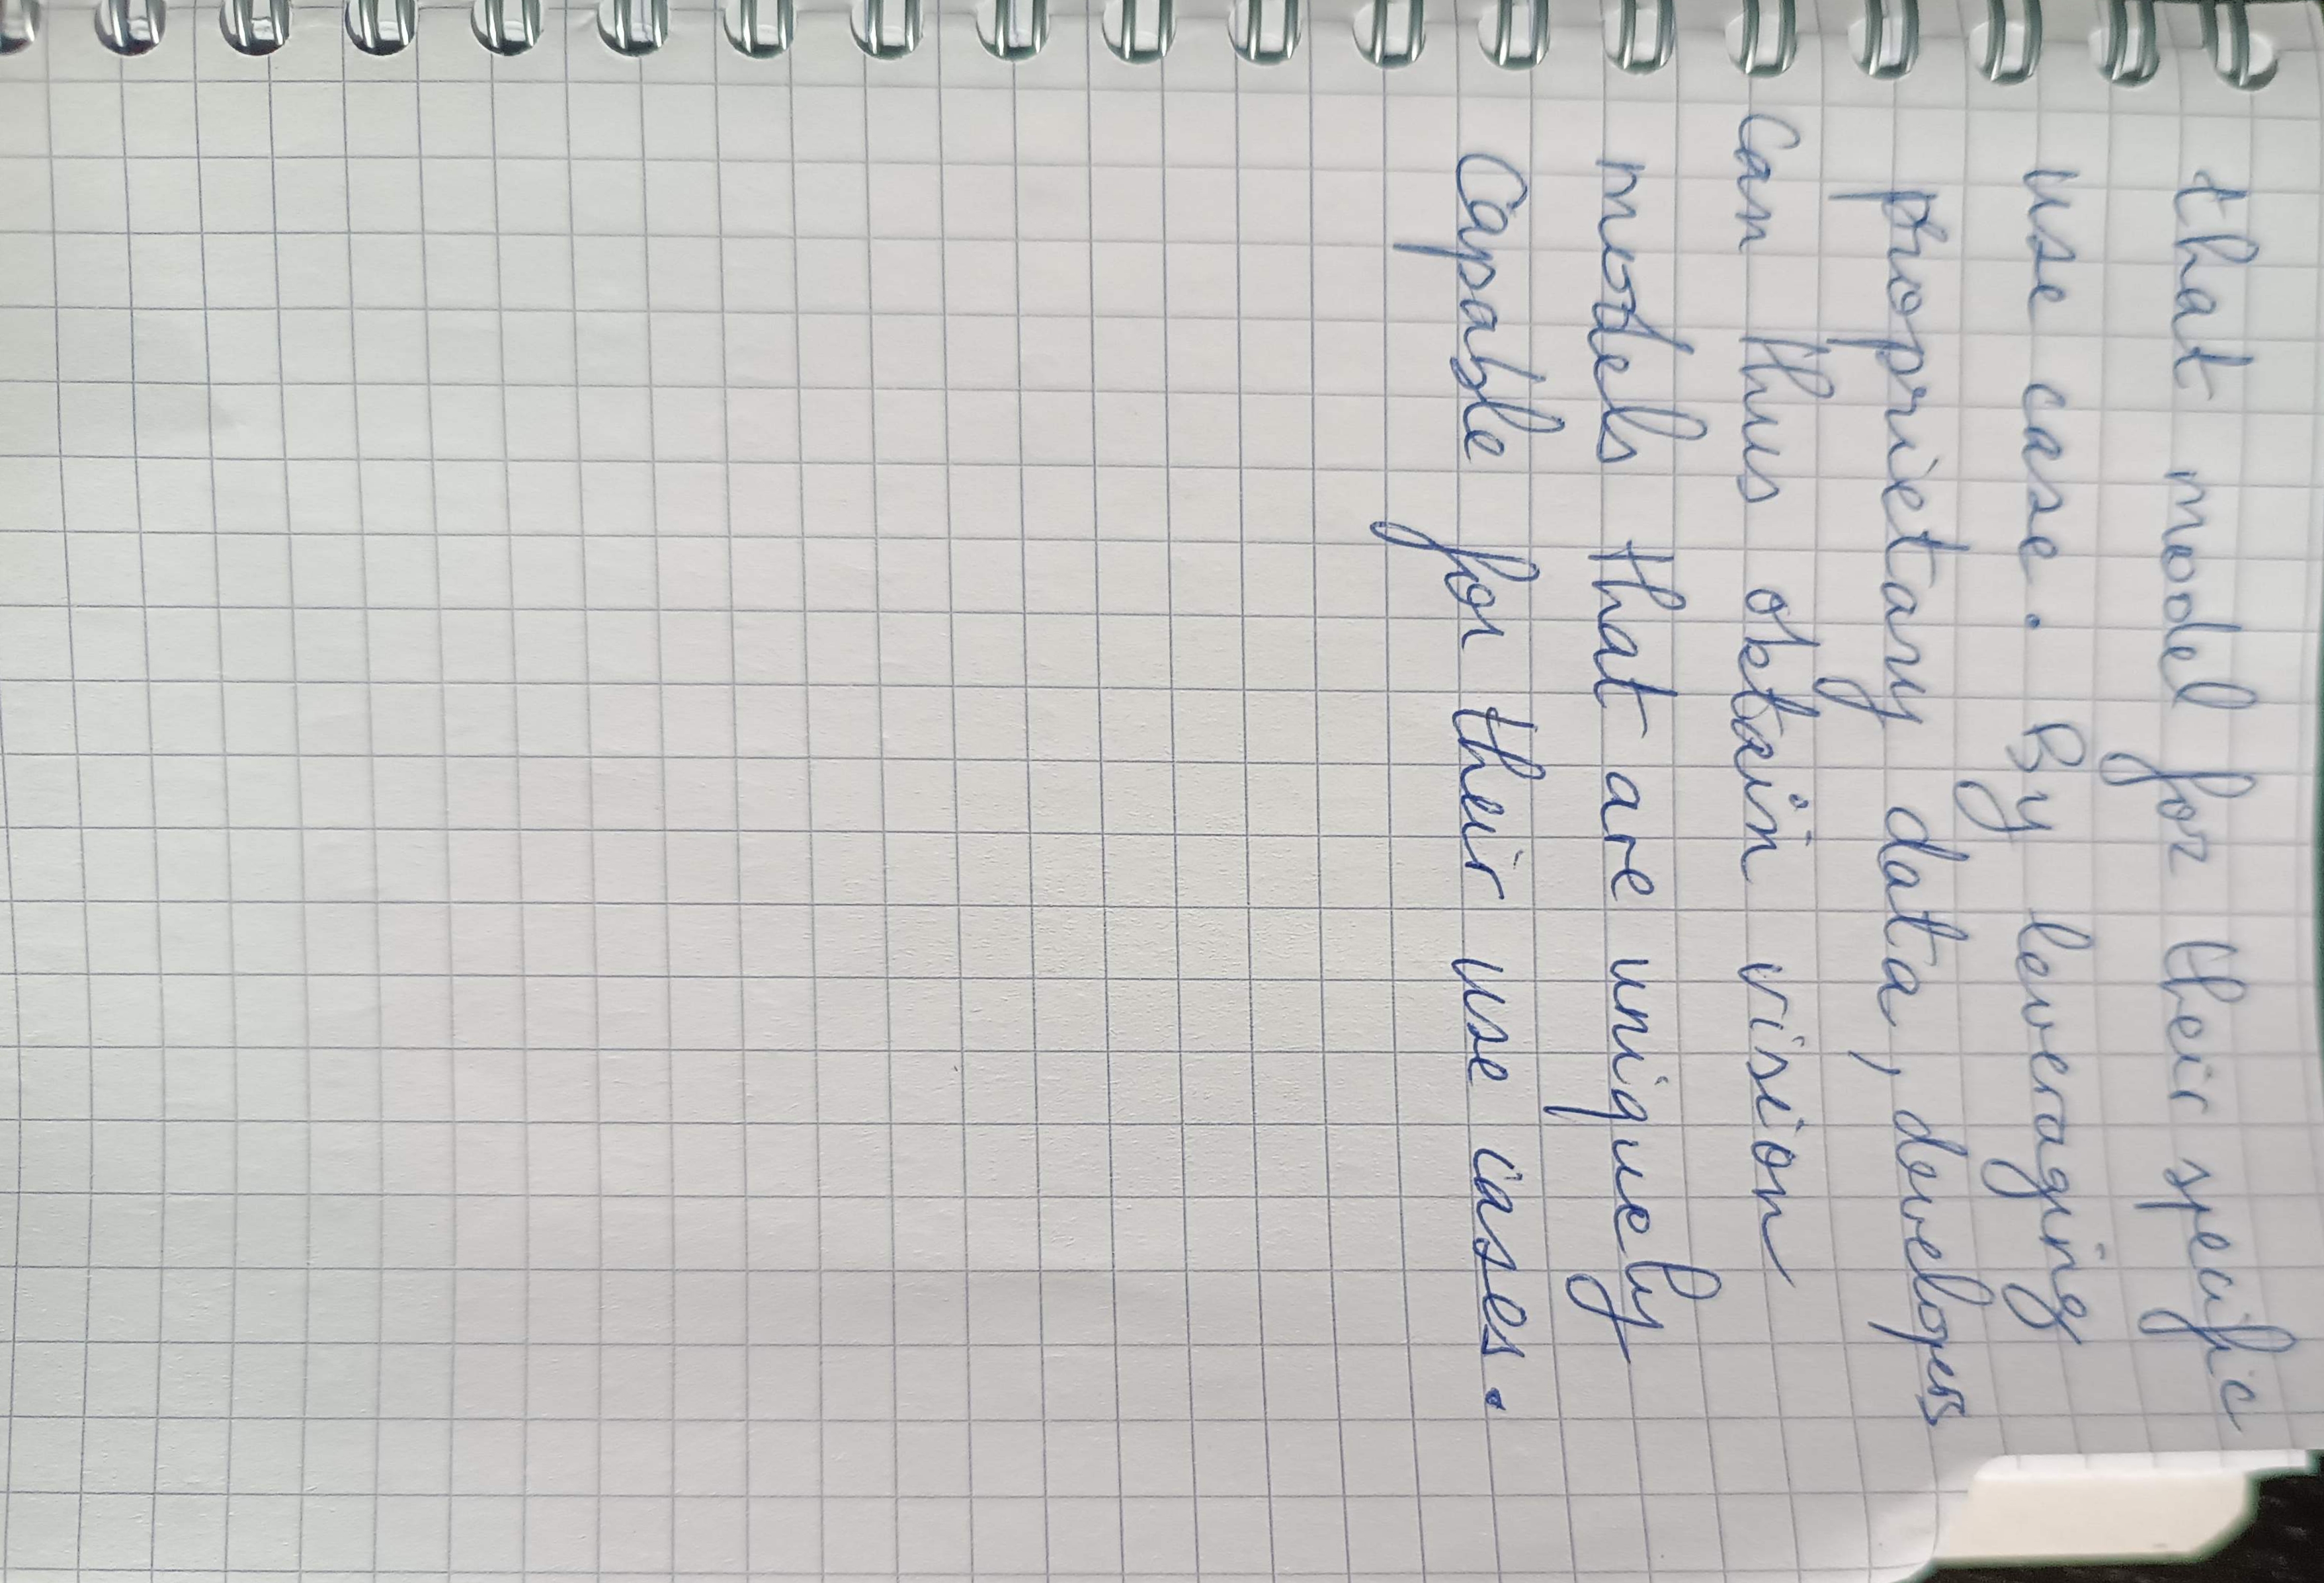 that model for their specific
use case. By leveraging
proprietary data, developers
can thus obtain vision
models that are uniquely
Capable for their use cases.